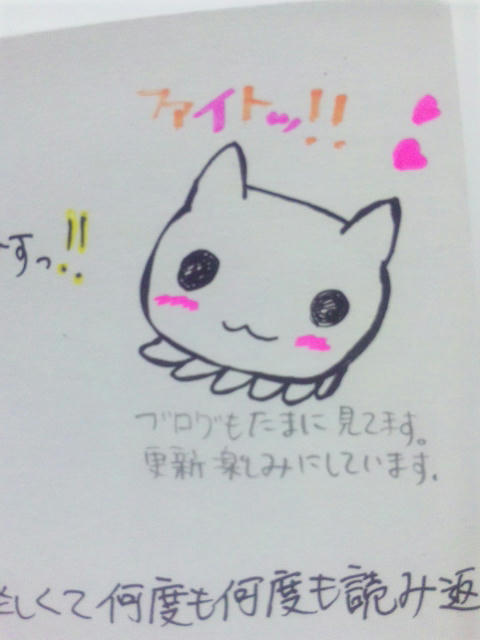 ファイトッ!!
すっ!!
ブログもたまに見てます。
更新楽しみにしています。
しくて何度も何度も読み返